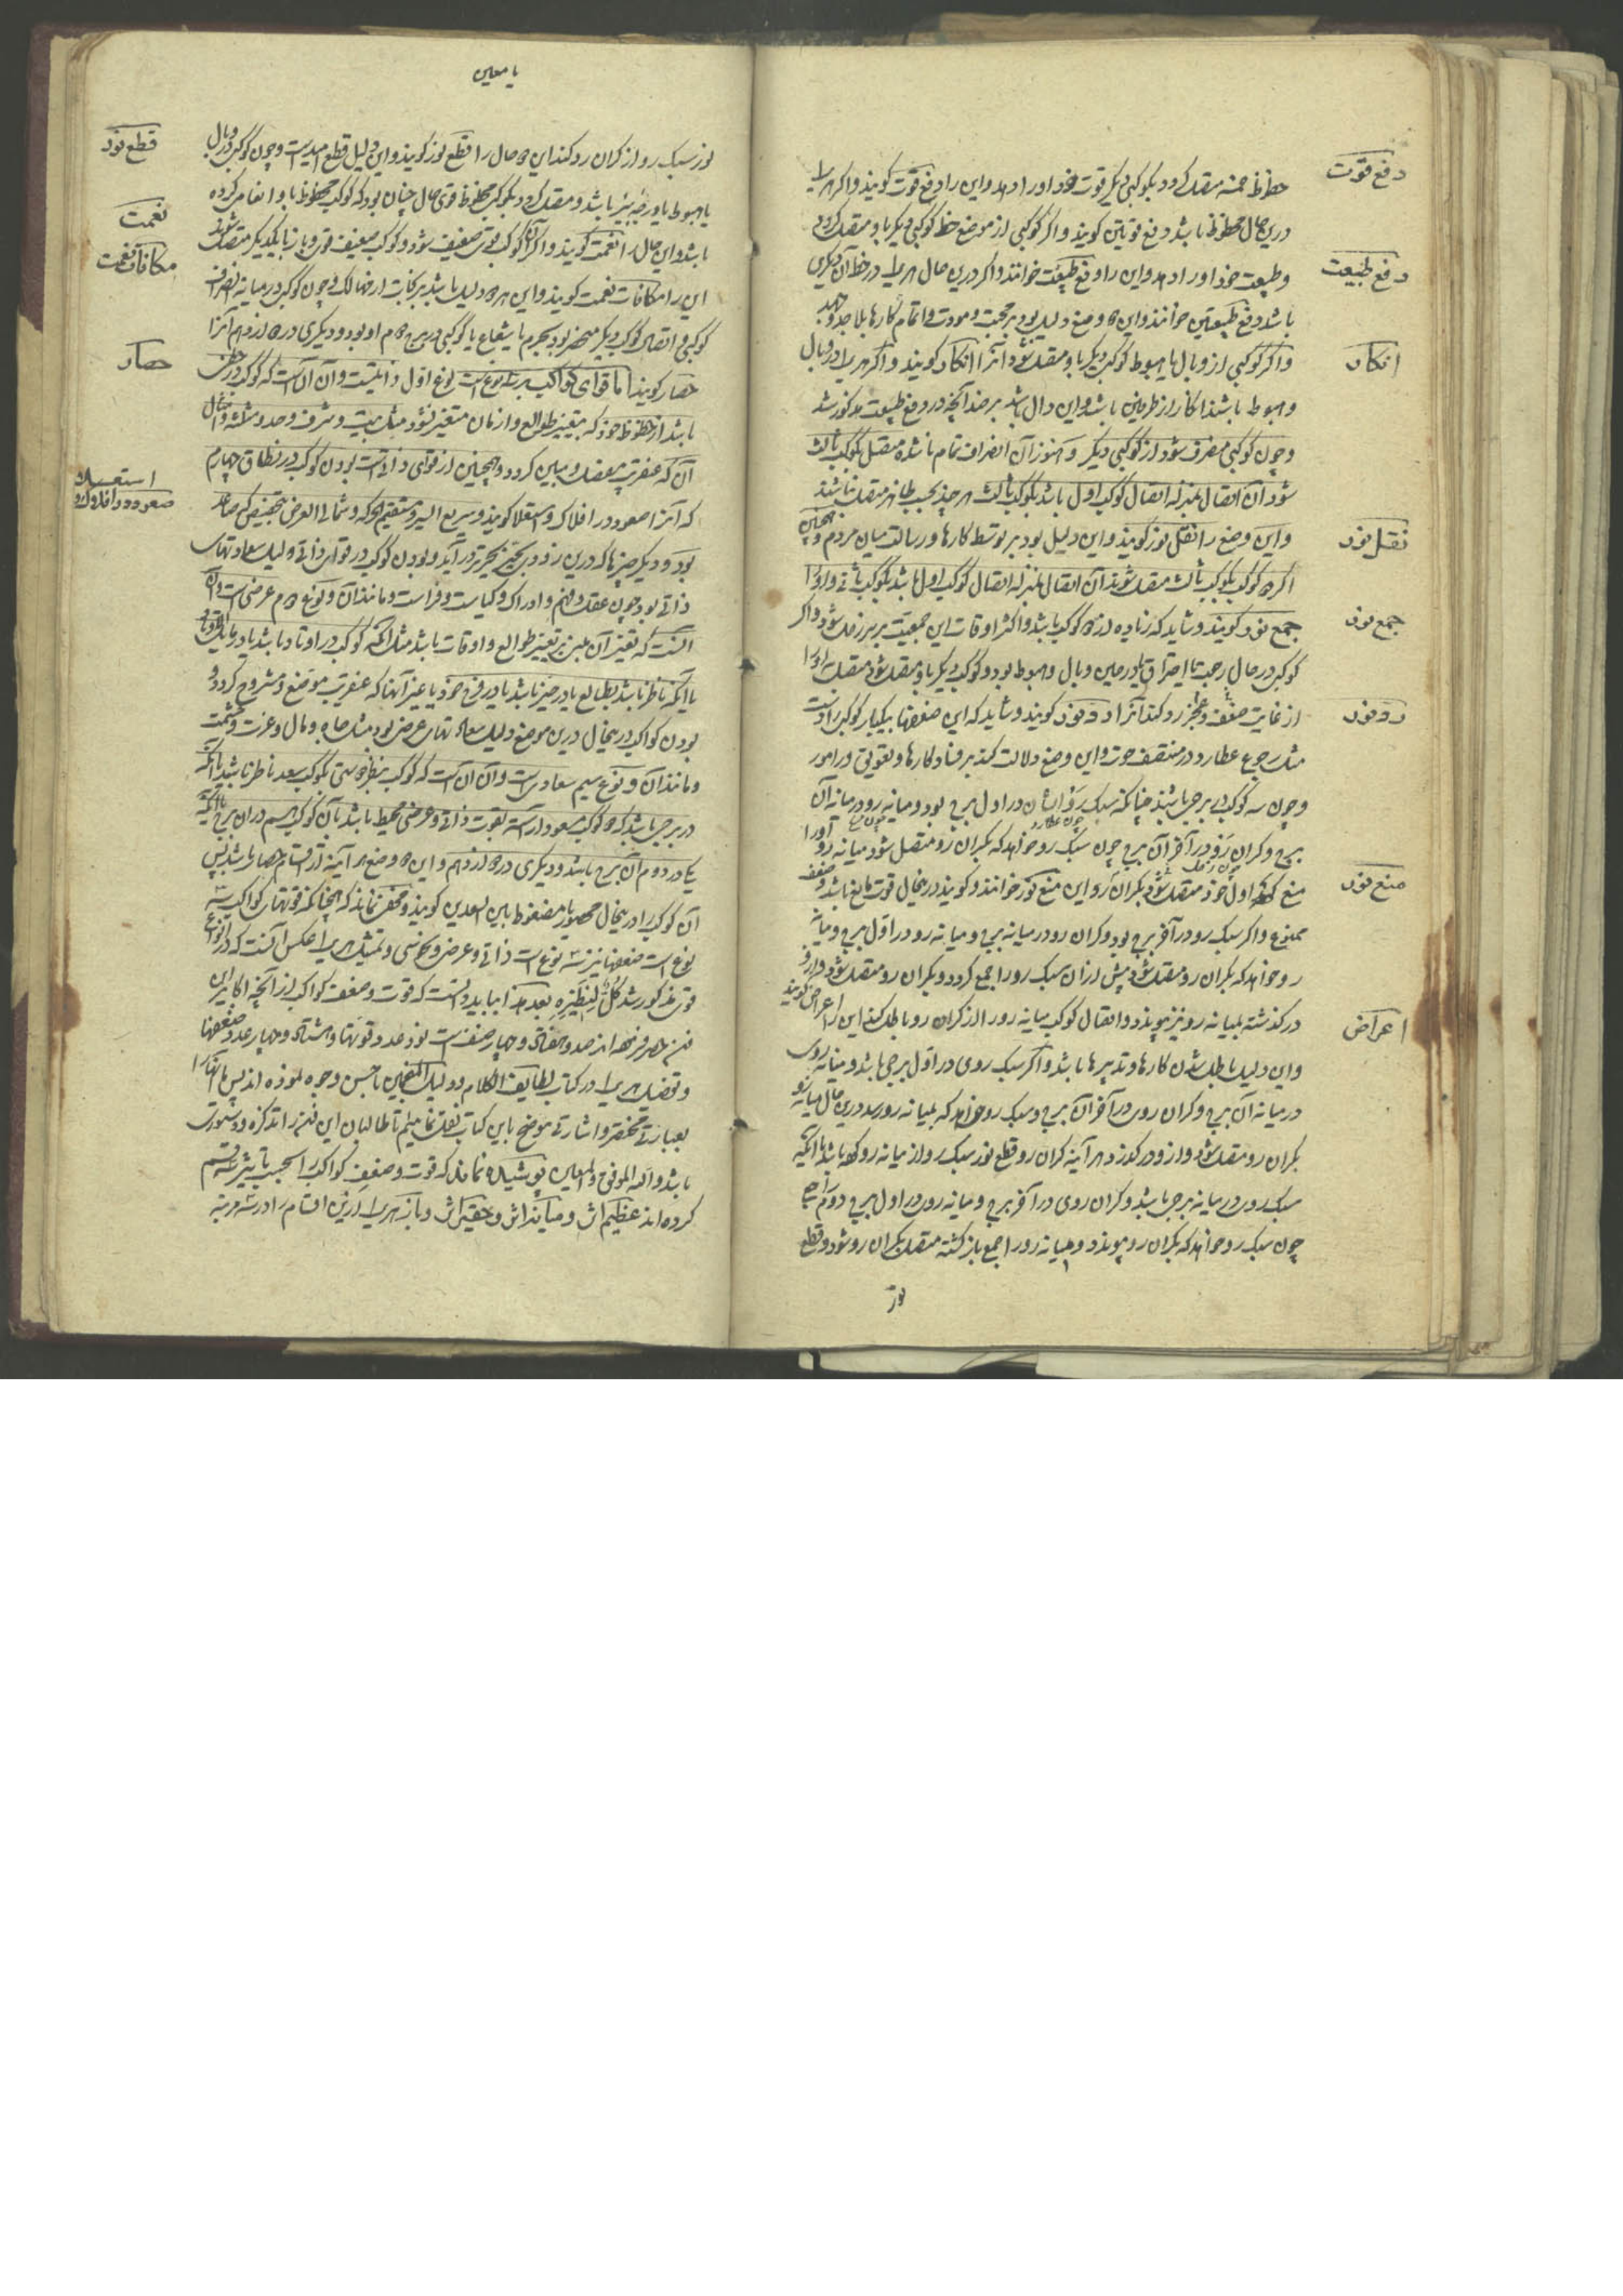 دفع قوت
حظوظ خمسه متصل گردد بکوکبی دیگر قوت خود او را دهد و این را دفع قوت کویند و اگر هر یک را
درین حال حظوظ باشد دفع قوتین کویند و اگر کوکبی از موضع حظ کوکبی دیگر باو متصل گردد
دفع طبیعت
و طبیعت خود او را دهد و این را دفع طبیعت خوانند و اگر درین حال هر یک را در حظ آن دیگری
باشد دفع طبیعتین خوانند و این دو وضع دلیل بود بر محبت و مودت و اتمام کارها بلا جد و جهد
انکار
و اگر کوکبی از وبال یا هبوط کوکب دیگر باو متصل شود آنرا انکار کویند و اگر هر یک را در وبال
و هبوط باشد انکار از طرفین باشد و این دال باشد بر ضد آنچه در دفع طبیعت مذکور شد
و چون کوکبی منصرف شود از کوکبی دیگر و هنوز آن انصراف تمام ناشده متصل بکوکب ثالث
شود آن اتصال بمنزله اتصال کوکب اول باشد بکوکب ثالث هر چند بحسب ظاهر متصل نباشند
نقل نور
و این وضع را نقل نور کویند و این دلیل بود بر توسط کارها و رسالت میان مردم و همچنین
اگر دو کوکب بکوکب ثالث متصل شوند آن اتصال بمنزله اتصال کوکب اول باشد بکوکب ثانی و او را
جمع نور
جمع نور کویند و شاید که زیاده از دو کوکب باشد و اکثر اوقات این جمعیت بر زحل شود و اگر
کوکبی در حال رجعت یا احتراق یا در حین وبال و هبوط بود و کوکب دیگر باو متصل شود متصل به او را
رد نور
از غایت ضعف و عجز رد کند آنرا رد نور کویند و شاید که این ضعفها بیکبار کوکبی را دست
مثل رجوع عطارد در منتصف حوت و این وضع دلالت کند بر فساد کارها و تعویق در امور
و چون سه کوکب در برجی باشند چنانکه سبک رو ایشان در اول برج بود و میانه رو در میانه آن
برج و کران رو در آخر آن برج چون سبک رو خواهد که بکران رو متصل شود میانه رو او را
منع نور
منع کند اول خود متصل شود بکران رو این منع نور خوانند و کویند درینحال قوت مانع باشد و ضعف
ممنوع و اگر سبک رو در آخر برج بود و کران رو در میانه برج و میانه رو در اول برج و میانه
رو خواهد که بکران رو متصل شود پیش از آن سبک رو راجع کردد و بکران رو متصل شود و از و
اعراض
در گذشته بمیانه رو نیز پیوندد و اتصال کوکب میانه رو را از کران رو باطل کند این را اعراض کویند
و این دلیل باطل شدن کارها و تدبیرها باشد و اگر سبک روی در اول برجی باشد و میانه روی
در میانه آن برج و کران روی در آخر آن برج و سبک رو خواهد که بمیانه رو رسد درین حال میانه رو
بکران رو متصل شود و از و در گذرد هر آینه کران رو قطع نور سبک رو از میانه رو کرده باشد یا آنکه
سبک روی در میانه برجی باشد و کران روی در آخر برج و میانه روی در اول برج دوم راجع
چون سبک رو خواهد که بکران رو پیوندد و میانه رو راجع باز گشته متصل بکران رو شود و قطع
نور
یا معین
قطع نور
نور سبک رو از کران رو کند این دو حال را قطع نور کویند و این دلیل قطع امید است و چون کوکبی در وبال
نعمت
یا هبوط یا در خیبر باشد و متصل گردد بکوکبی محظوظ قوی حال چنان بود که کوکب محظوظ باو انعام کرده
باشد و این حال را نعمت کویند و اگر آن کوکب قوی ضعیف شود و کوکب ضعیف قوی و باز بایکدیگر متصل شوند
مکافات نعمت
این را مکافات نعمت کویند و این هر دو دلیل باشد بر
کوکبی و اتصال کوکب دیگر منحصر بود بجرم یا بشعاع یا کوکبی در برج دوم او بود و دیگری در دوازدهم آنرا
حصار
حصار کویند اما قوای کواکب بر سه نوع است نوع اول ذاتیست و آن آن است که کوکب در حظی
باشد از حظوظ خود که بتغییر طوالع و ازمان متغیر نشود مثل بیت و شرف و حد و مثلثه و امثال
آن که عنقریب مفصل و مبین کردد و همچنین از قوای ذاتیست بودن کوکب در نطاق چهارم
استعلا
صعود در افلاک
که آنرا صعود در افلاک و استعلا کویند و سریع السیر و مستقیم الحرکه و شمالی العرض
بود و دیگر چیزها که درین
ذاتی بود چون عقل و فهم و ادراک و کیاست و فراست و مانند آن و نوع دوم عرضی است و آن
آنست که تغیر آن مبنی بر تغییر طوالع و اوقات باشد مثل آنکه کوکب در اوتاد باشد یا در مایل اوتاد
یا آنکه ناظر باشد بطالع یا در حیز باشد یا در فرح خود یا غیر آنها که عنقریب موضح و مشروح کردد و
بودن کواکب درینحال درین موضع دلیل سعادتهای عرضی بود مثل جاه و مال و عزت و حشمت
و مانند آن و نوع سیم سعادیست و آن آن است که کوکب بنظر دوستی بکوکب سعد ناظر باشد یا آنکه
در برجی باشد که دو کوکب مسعود آراسته بقوت ذاتی و عرضی محیط باشند بآن کوکب هم در آن برج یا آنکه
یکی در دوم آن برج باشد و دیگری در دوازدهم و این دو وضع هر آینه از قسم حصار باشد پس
آن کوکب را درینحال محصور یا مضغوط بین السعدین کویند و مخفی نماند که همچنانکه قوتهای کواکب سه
نوع است ضعفها نیز سه نوع است ذاتی و عرضی و نحوسی و تمثیل هر یک را عکس آنست که در انواع
قوت مذکور شد کل لنظیره بعد هذا بباید دانست که قوت و ضعف کواکب از آنچه اکابر این
فن حصر فرموده اند صد و هفتاد و چهار صنف است نود عدد قوتها و هشتاد و چهار عدد ضعفها
و تفصیل هر یک را در کتاب لطایف الکلام و دلیل المنجمین باحسن وجوه نموده اند پس ما آنها را
بعبارتی مختصر و اشارتی موضح باین کتاب نقل نماییم تا طالبان این فن را تذکره و دستوری
باشد و الله الموفق و المعین پوشیده نماند که قوت و ضعف کواکب را بحسب تاثیر سه قسم
کرده اند عظیم اثر و میانه اثر و حقیر اثر و باز هر یک را ازین اقسام را در سه مرتبه